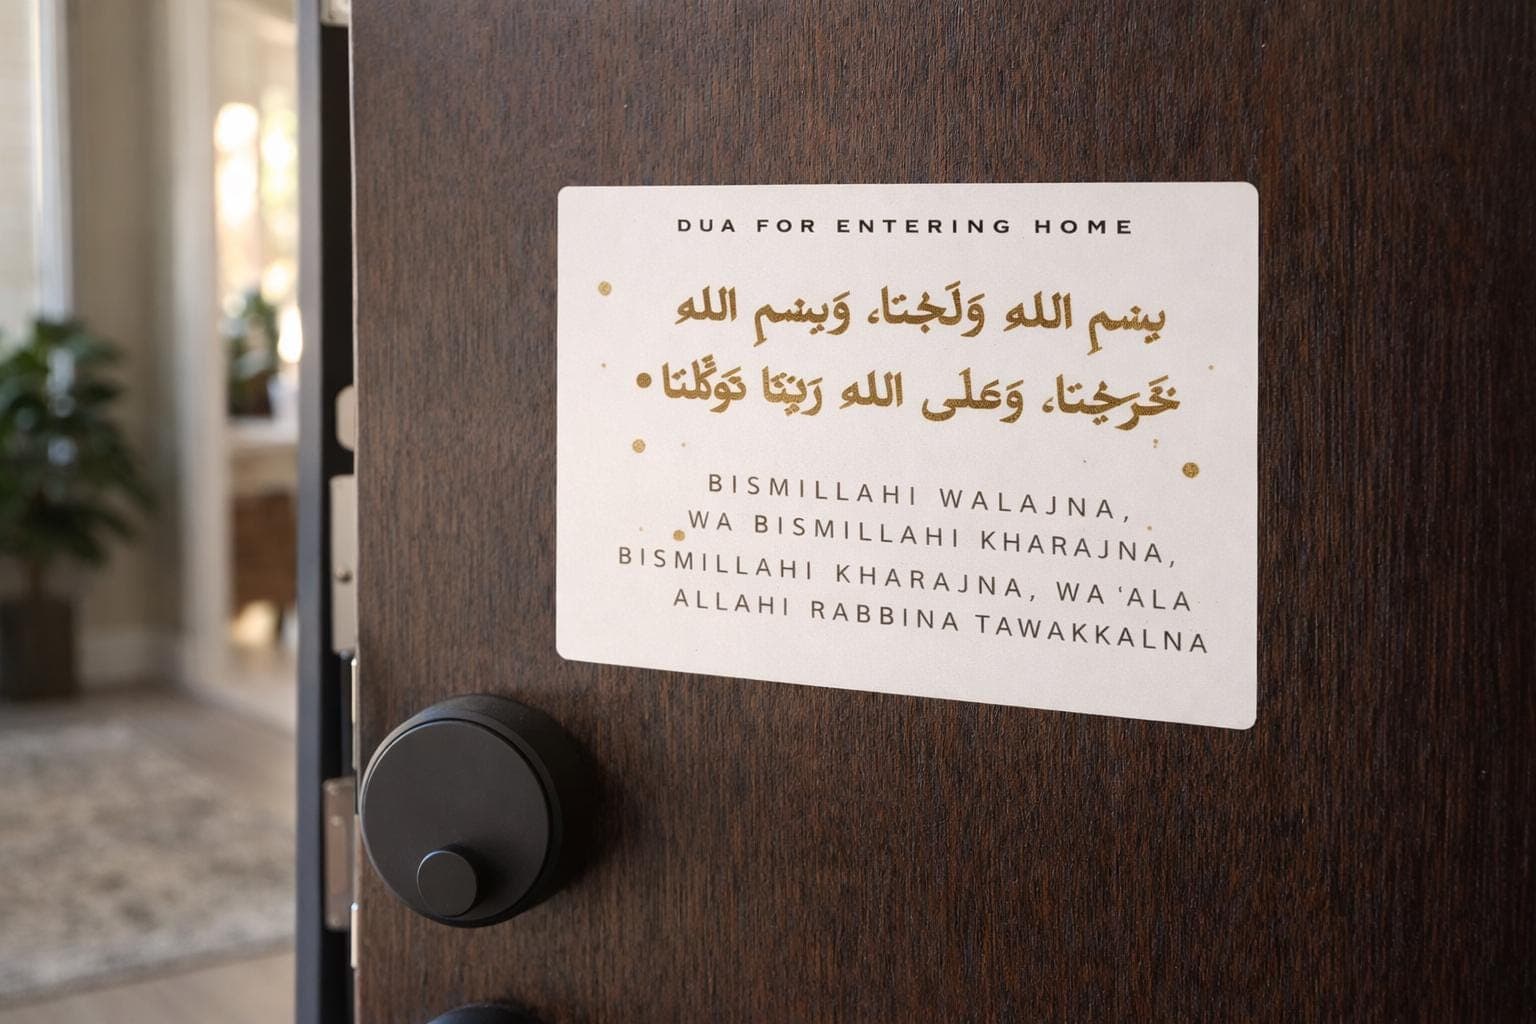 DUA FOR ENTERING HOME
بِسْمِ الله وَلَجْنَا، وَبِسْمِ الله
خَرَجْنَا، وَعَلَى الله رَبِّنَا تَوَكَّلْنَا
BISMILLAHI WALAJNA,
WA BISMILLAHI KHARAJNA,
BISMILLAHI KHARAJNA, WA ‘ALA
ALLAHI RABBINA TAWAKKALNA